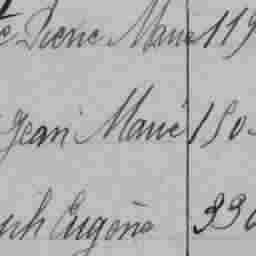 Pierre Marie 119
Jean Marie 150
Eugène 330